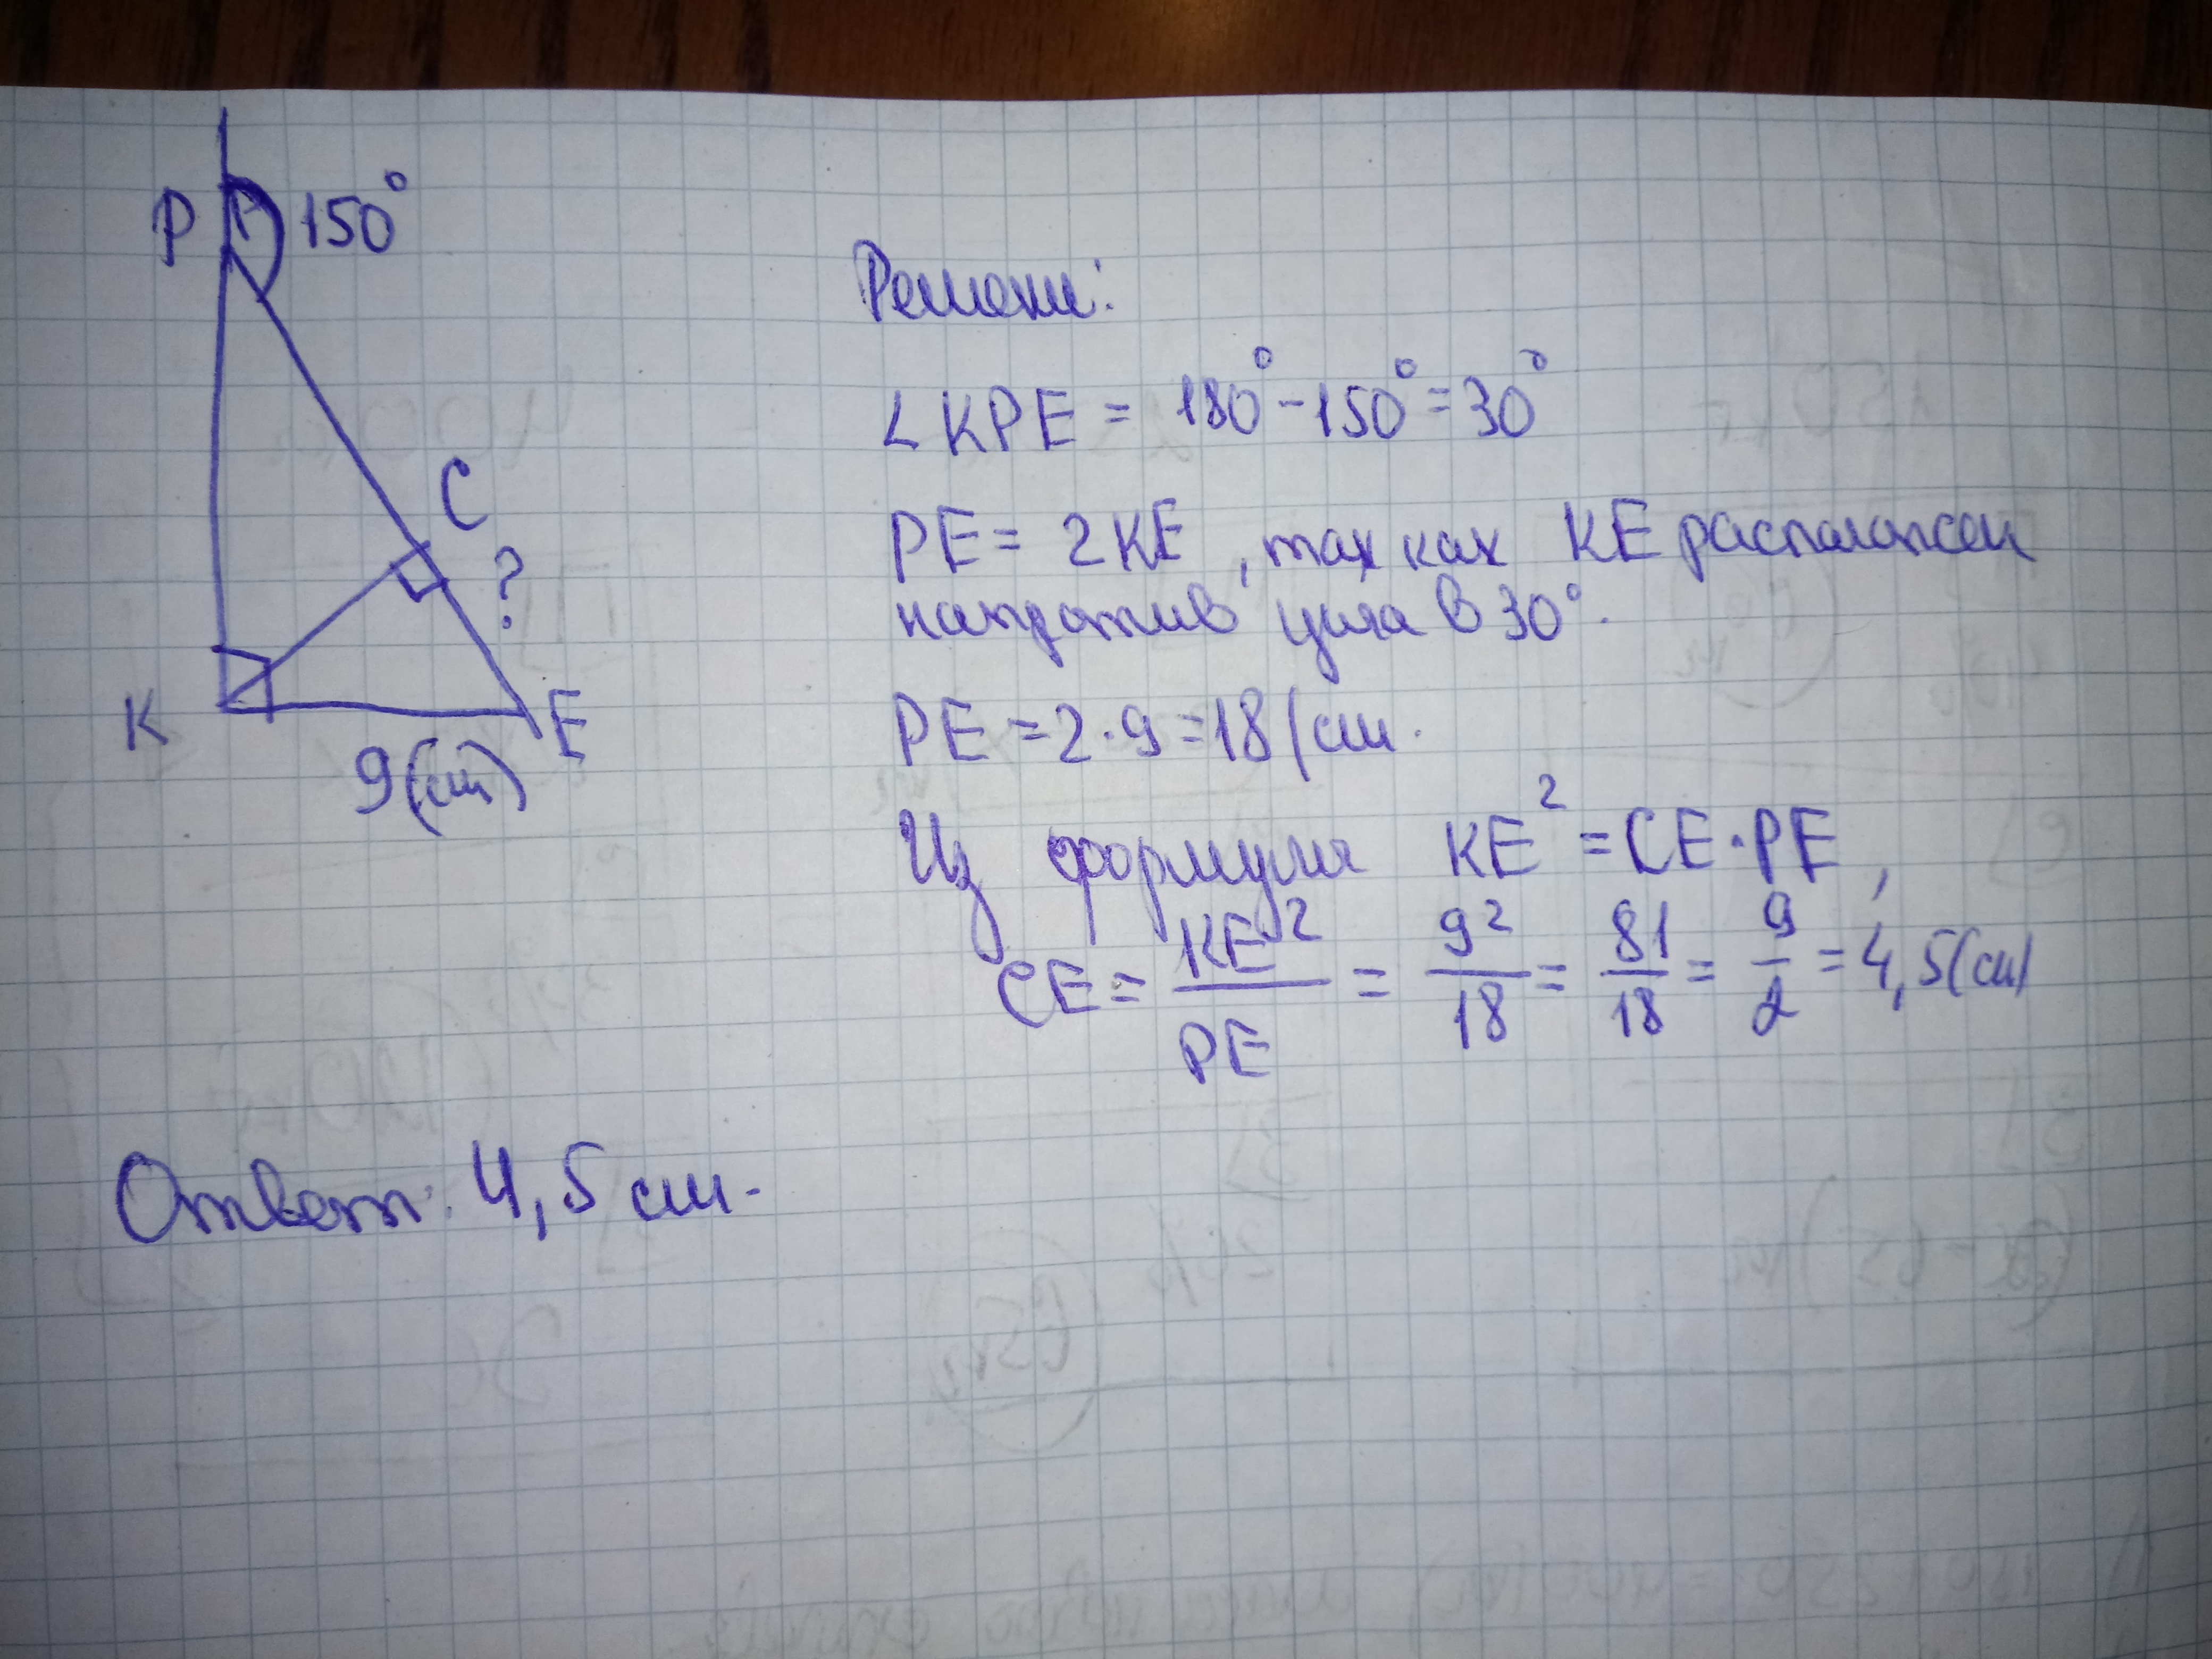 P 150°
C
?
K
E
9(см)
Решени:
∠KPE = 180°-150°=30°
PE = 2KE, так как KE расположен
напротив угла в 30°.
PE = 2·9=18(см.
Из формулы KE² = CE·PE,
CE = KE²/PE = 9²/18 = 81/18 = 9/2 = 4,5(см)
Ответ: 4,5 см.